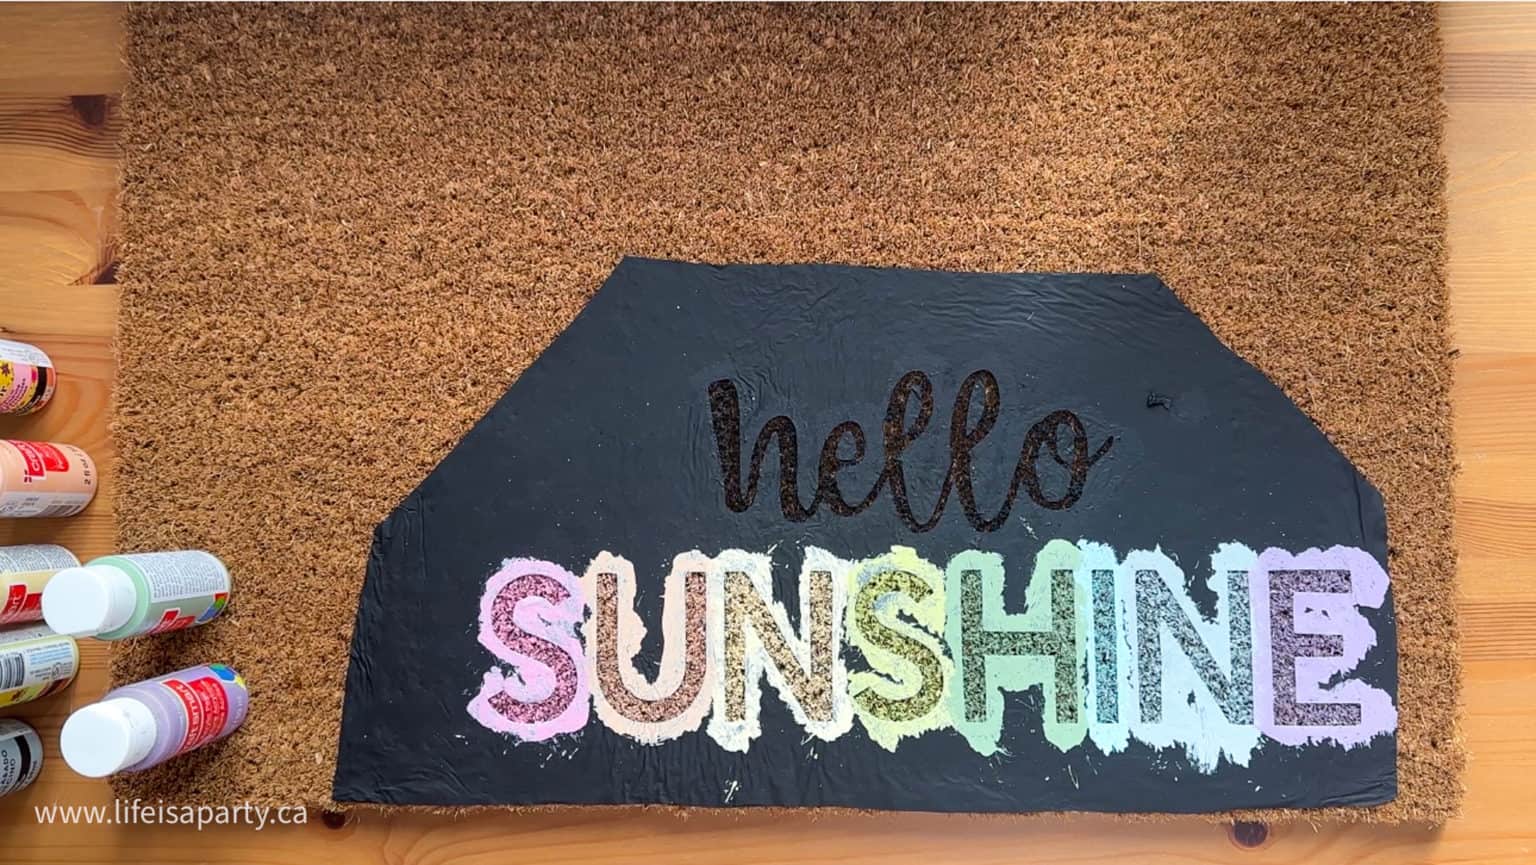 hello
SUNSHINE
www.lifeisaparty.ca